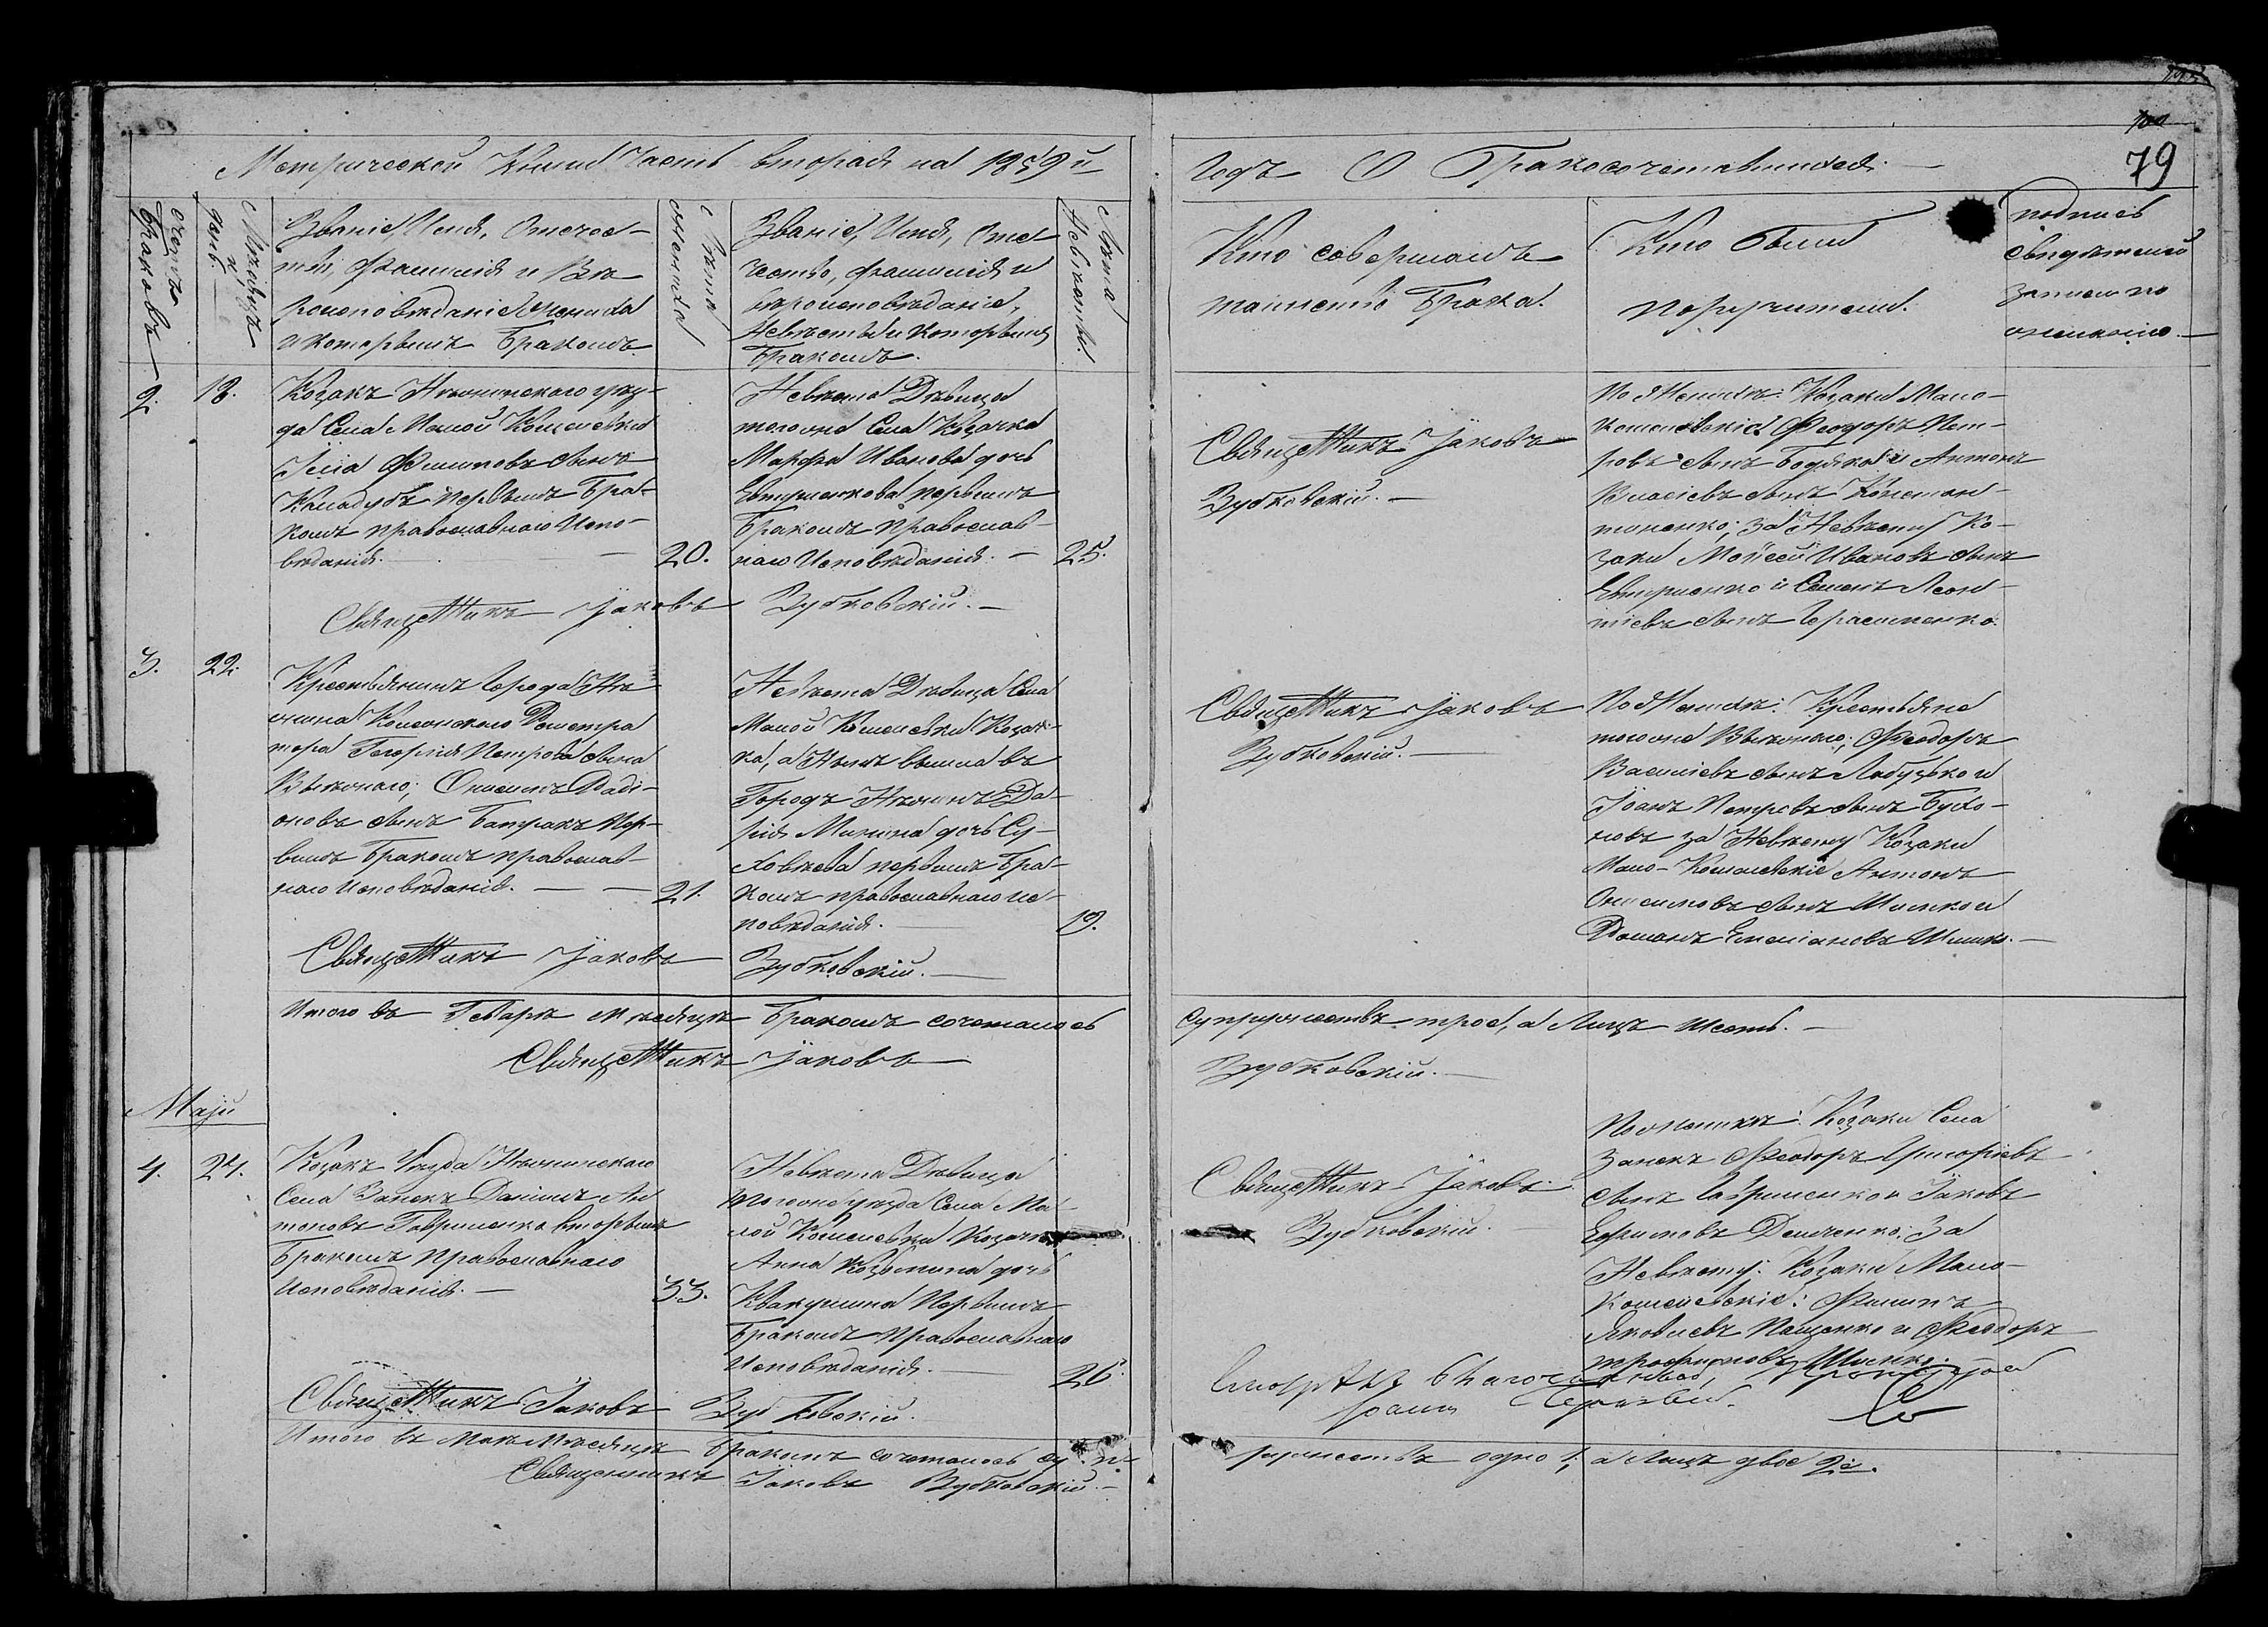 79
Метрической Книги Часть вторая на 1859й
Годъ О Бракосочетавшихся.
Счетъ Браковъ
Мѣсяцъ и день.
Званіе, Имя, Отечес-
тво, Фамилія и Вѣ-
роисповѣданіе Жениха
и которымъ Бракомъ
Лѣта жениха
Званіе, Имя, Оте-
чество, фамилія и
вѣроисповѣданіе,
Невѣсты и которымъ
Бракомъ.
Лѣта Невѣсты.
Кто совершалъ
таинство Брака.
Кто были
поручители.
подпись
свидѣтелей
записи по
желанію.
2.
18.
Козакъ Нѣжинскаго уѣз-
да Села Малой Кошелевки
Филиповъ сынъ
первымъ Бра-
комъ православнаго Испо-
вѣданія.
20.
Невѣста Дѣвица
того же Села Козачка
Марфа Иванова дочь
первымъ
Бракомъ православ-
наго Исповѣданія.
25.
Священникъ Іаковъ
Зубковскій.
По Женихѣ: Козаки Мало-
кошелевскіе Феодоръ Пет-
ровъ сынъ и Антонъ
Власіевъ сынъ Констан-
тиненко; за Невѣсту Ко-
заки Моисей Ивановъ сынъ
и Семенъ Леон-
тіевъ сынъ Герасименко.
Священникъ Іаковъ Зубковскій.
3.
22.
Крестьянинъ Города Нѣ-
жина
Георгія Петрова сына
сынъ Батракъ пер-
вымъ Бракомъ православ-
наго Исповѣданія.
21.
Невѣста Дѣвица Села
Малой Кошелевки Козач-
ка, а вышла въ
Городъ Нѣжинъ Да-
рія Минина дочь
первымъ Бра-
комъ православнаго ис-
повѣданія.
19.
Священникъ Іаковъ
Зубковскій.
По Женихѣ: Крестьяне
того же Феодоръ
Василіевъ сынъ и
Іоанъ Петровъ сынъ
за Невѣсту Козаки
Мало-Кошелевскіе Антонъ
Онисимовъ сынъ Шилко и
Романъ Емеліановъ Шилко.
Священникъ Іаковъ Зубковскій.
Итого въ Генварѣ мѣсяцѣ Бракомъ сочеталось
супружествъ трое, а Лицъ шесть.
Священникъ Іаковъ Зубковскій.
Маій
4.
24.
Козакъ Уѣзда Нѣжинскаго
Села Заньк Даніилъ Ан-
тоновъ Гавриленко вторымъ
Бракомъ православнаго
Исповѣданія.
33.
Невѣста Дѣвица
того же уѣзда Села Ма-
лой Кошелевки Козачка
Анна Козьмина дочь
Квакушина Первымъ
Бракомъ православнаго
Исповѣданія.
26.
Священникъ Іаковъ
Зубковскій.
По женихѣ: Козаки Села
Занекъ Феодоръ Григоріевъ
сынъ Гавриленко и Іаковъ
Ефимовъ Демченко; За
Невѣсту: Козаки Мало-
кошелевскіе: Филипъ
Яковлевъ Пащенко и Феодоръ
Трофимовъ Шилко.
Священникъ Іаковъ Зубковскій.
Смотрѣлъ Благочинный, Протоіерей
Итого въ Маѣ Мѣсяцѣ Бракомъ сочеталось суп-
ружествъ одно 1; а Лицъ двое 2е.
Священникъ Іаковъ Зубковскій.